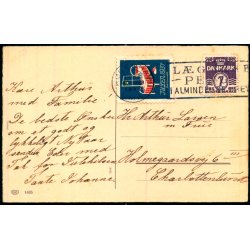 Kære Arthur
med Familie!
De bedste Ønsker
om et godt og
lykkeligt Nytaar
sender Eder med
Tak for Julehilsen
Tante Johanne.
LÆG
PE
I ALMINDE
DANMARK
Hr. Arthur Larsen
m. Frue
Holmegaardsvej 6
Charlottenlund